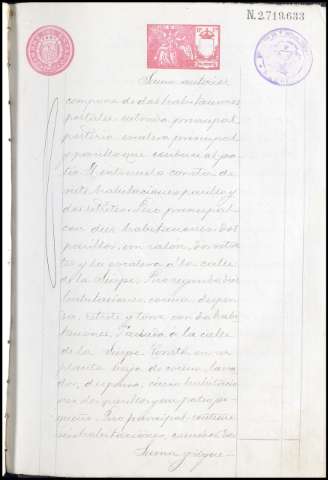 N.2.719.633
Suma anterior
compone de dos habitaciones
portales entrada principal
portería escalera principal
y pasillo que conduce al pa-
tio. El entresuelo consta de
siete habitaciones pasillo y
dos retretes. Piso principal
con diez habitaciones dos
pasillos, un salon, dos retre-
tes y la escalera a la calle
de la Sierpe. Piso segundo dos
habitaciones, cocina, despen-
sa, retrete y torre con dos habi-
taciones. Fachada a la calle
de la Sierpe. Consta en su
planta baja de cocina, lava-
dor, despensa, cinco habitacio
nes dos pasillos y un patio pe-
queño. Piso principal, contiene
seis habitaciones,
Suma y sigue